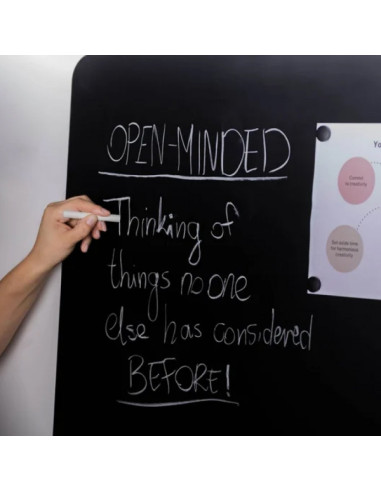 OPEN-MINDED
Thinking of
things no one
else has considered
BEFORE!
Yo
Commit
to creativity